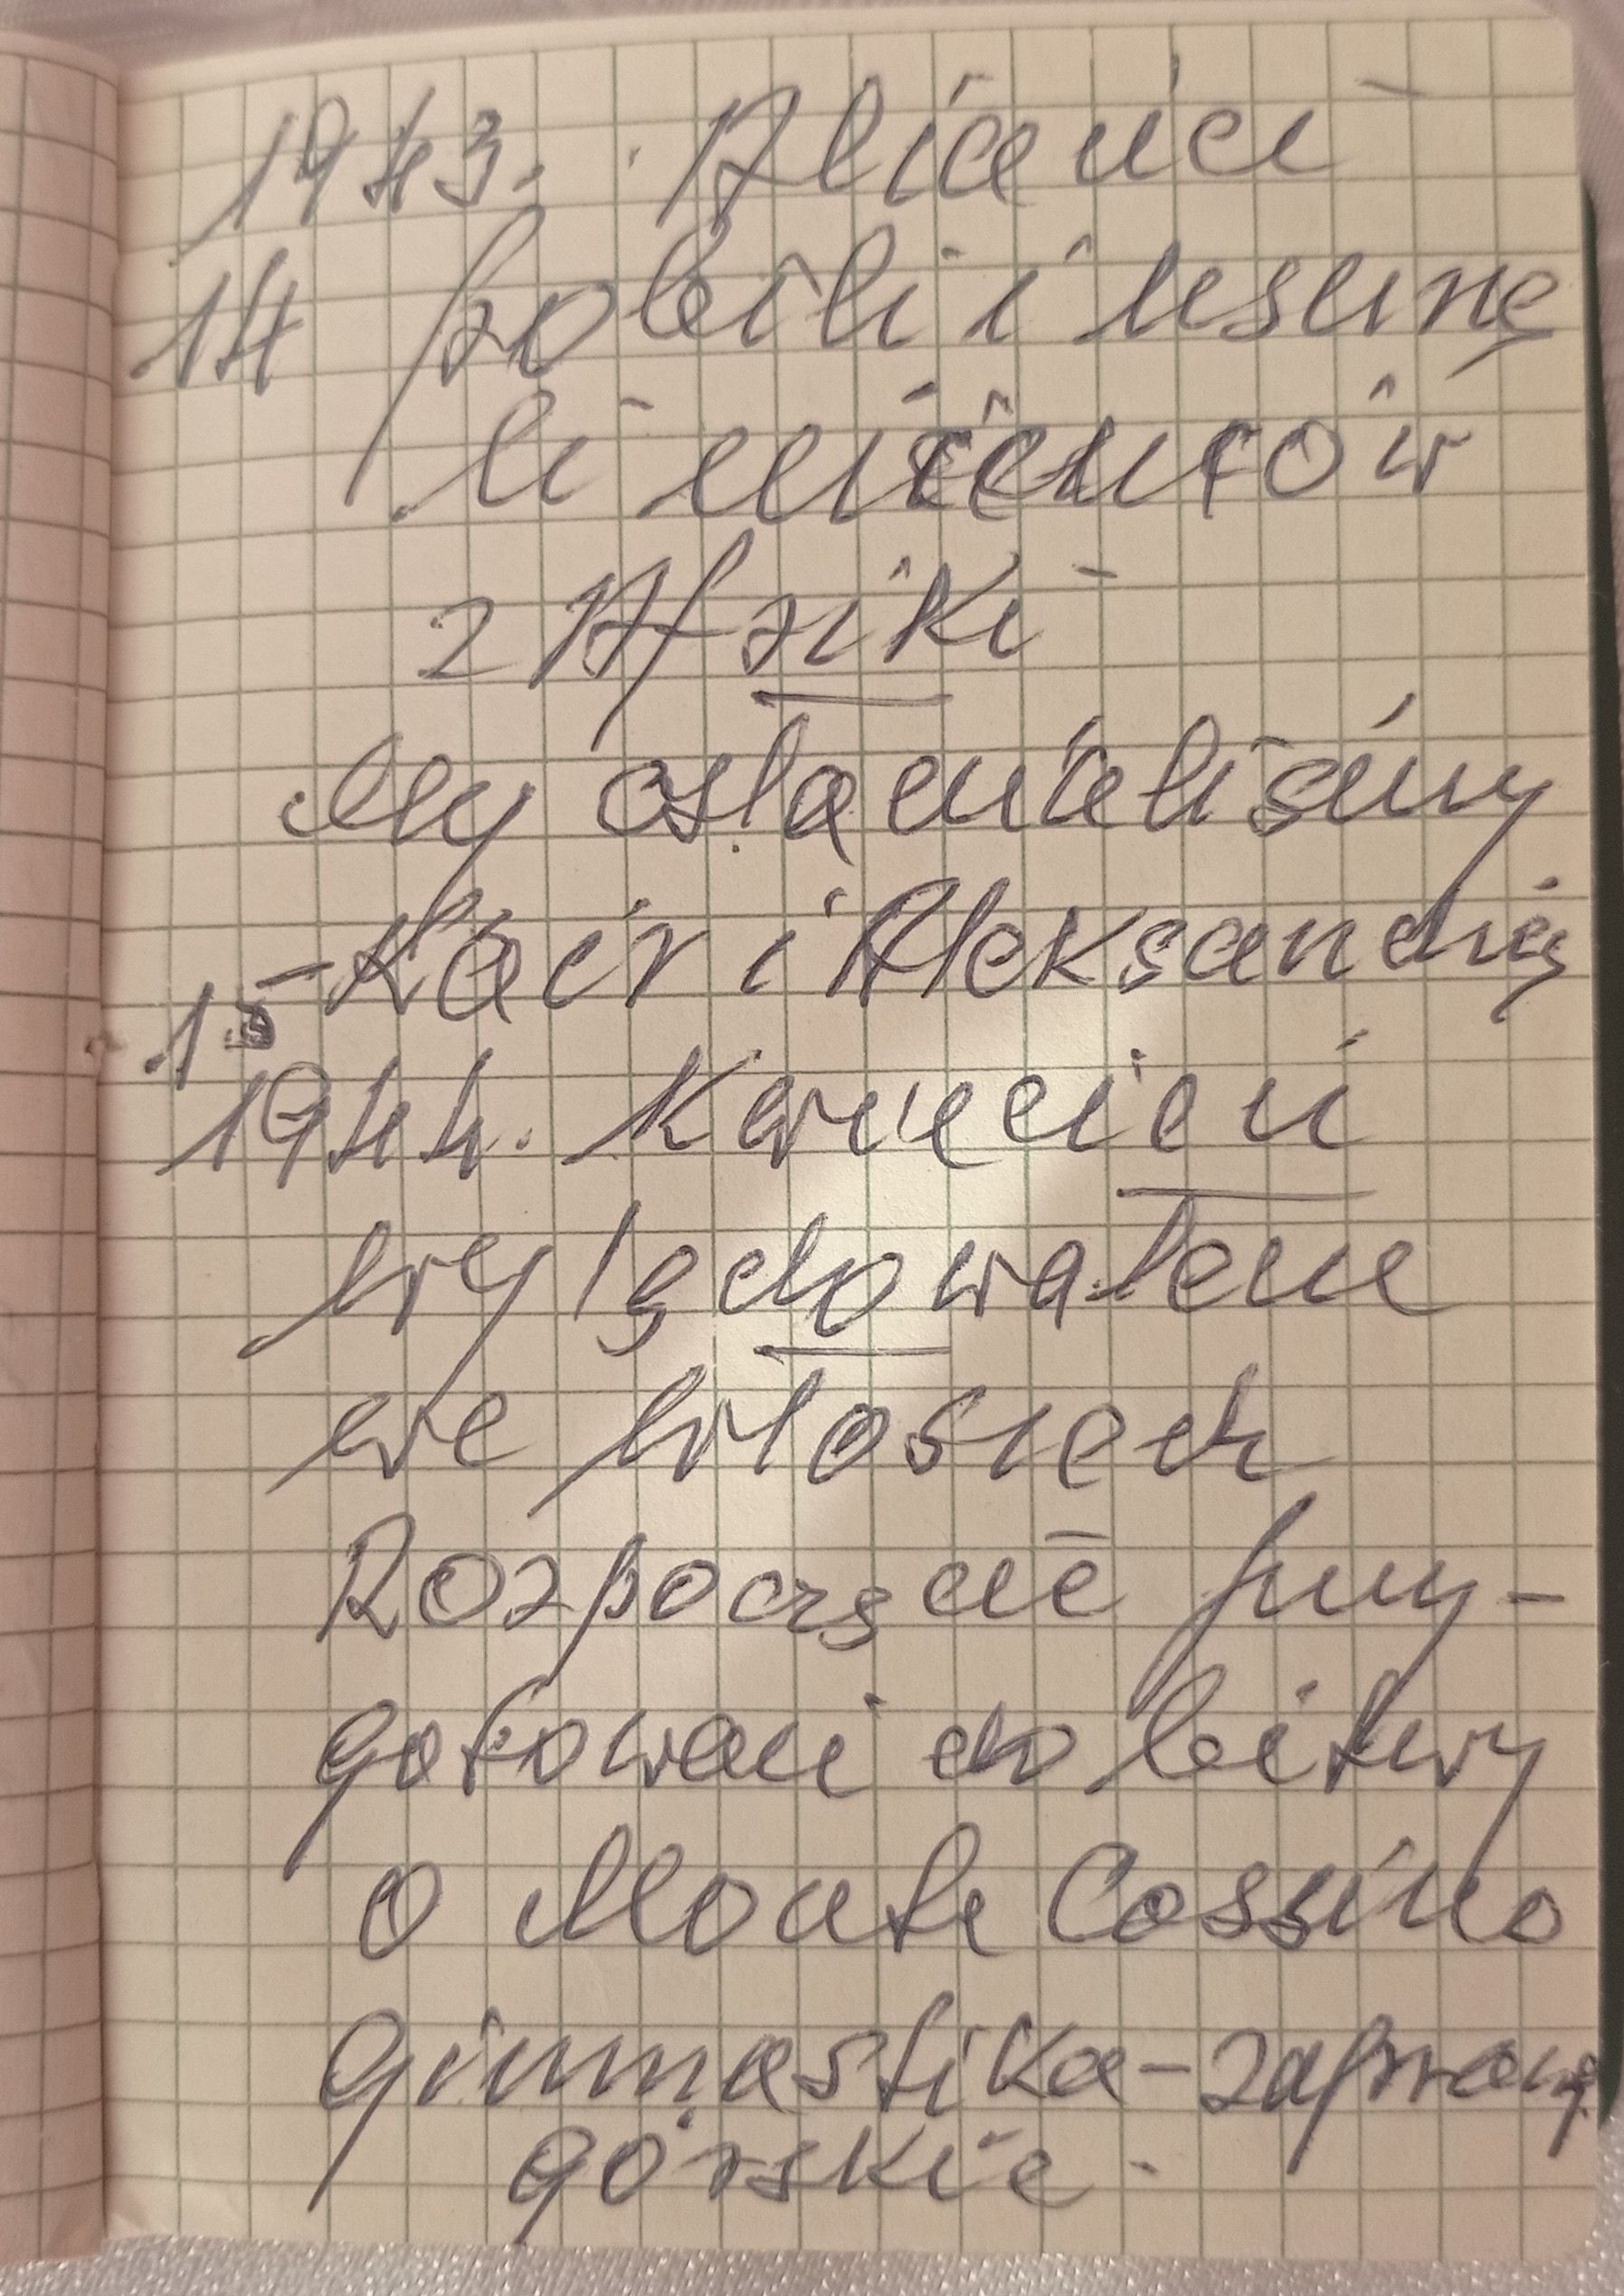 1943. Alianci
14 pobili i usunę
li niemców
z Afriki
My osłanialiśmy
Kair i Aleksandrię
15
1944. Kwiecień
wylądowałem
we Włoszech
Rozpoczęcie przy-
gotowań do bitwy
o Monte Cassino
Gimnastika - zaprawy
górskie.